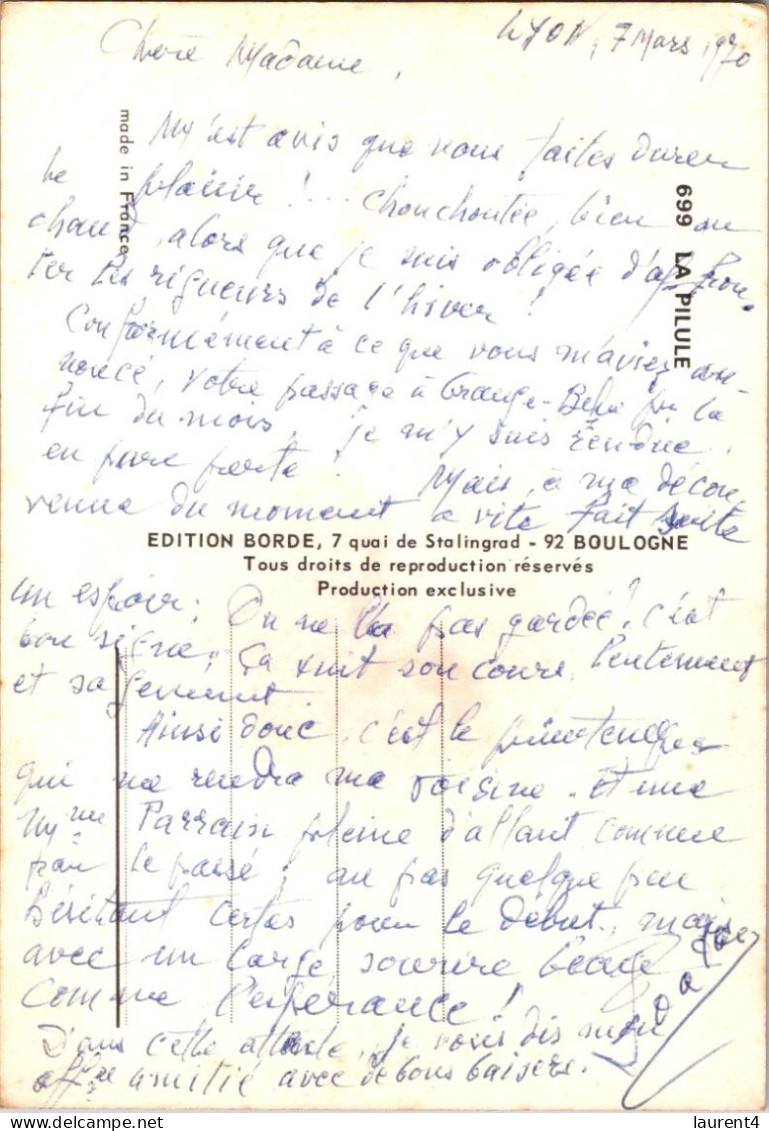 LYON, 7 Mars 1970
Chère Madame,
M'est avis que vous faites durer
le plaisir !... Chouchoutée, bien au
chaud, alors que je suis obligée d'affron-
ter les rigueurs de l'hiver !
Conformément à ce que vous m'aviez an-
noncé, votre passage à Grange- la
fin du mois, je m'y suis rendue.
en pure perte ! Mais, à ma décon-
venue du moment a vite fait suite
made in France
699 LA PILULE
EDITION BORDE, 7 quai de Stalingrad - 92 BOULOGNE
Tous droits de reproduction réservés
Production exclusive
un espoir : On ne l'a pas gardée ! c'est
bon signe. Ça suit son cours, lentement
et sagement.
Ainsi donc, c'est le printemps
qui me rendra ma voisine. et une
Mme Parrain pleine d'allant comme
par le passé ; au pas quelque peu
hésitant certes pour le début, mais
avec un large sourire
comme l'espérance !
Dans cette attente, je vous dis mon
affse amitié avec de bons baisers.
laurent4